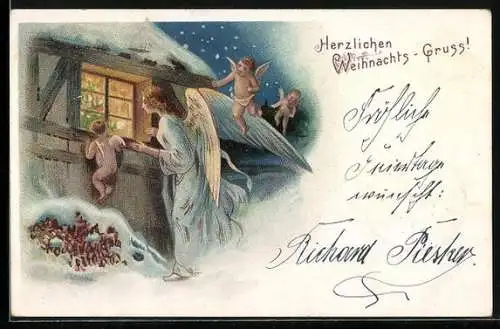 Herzlichen
Weihnachts-Gruss!
Fröhliche
Feiertage
wünscht:
Richard